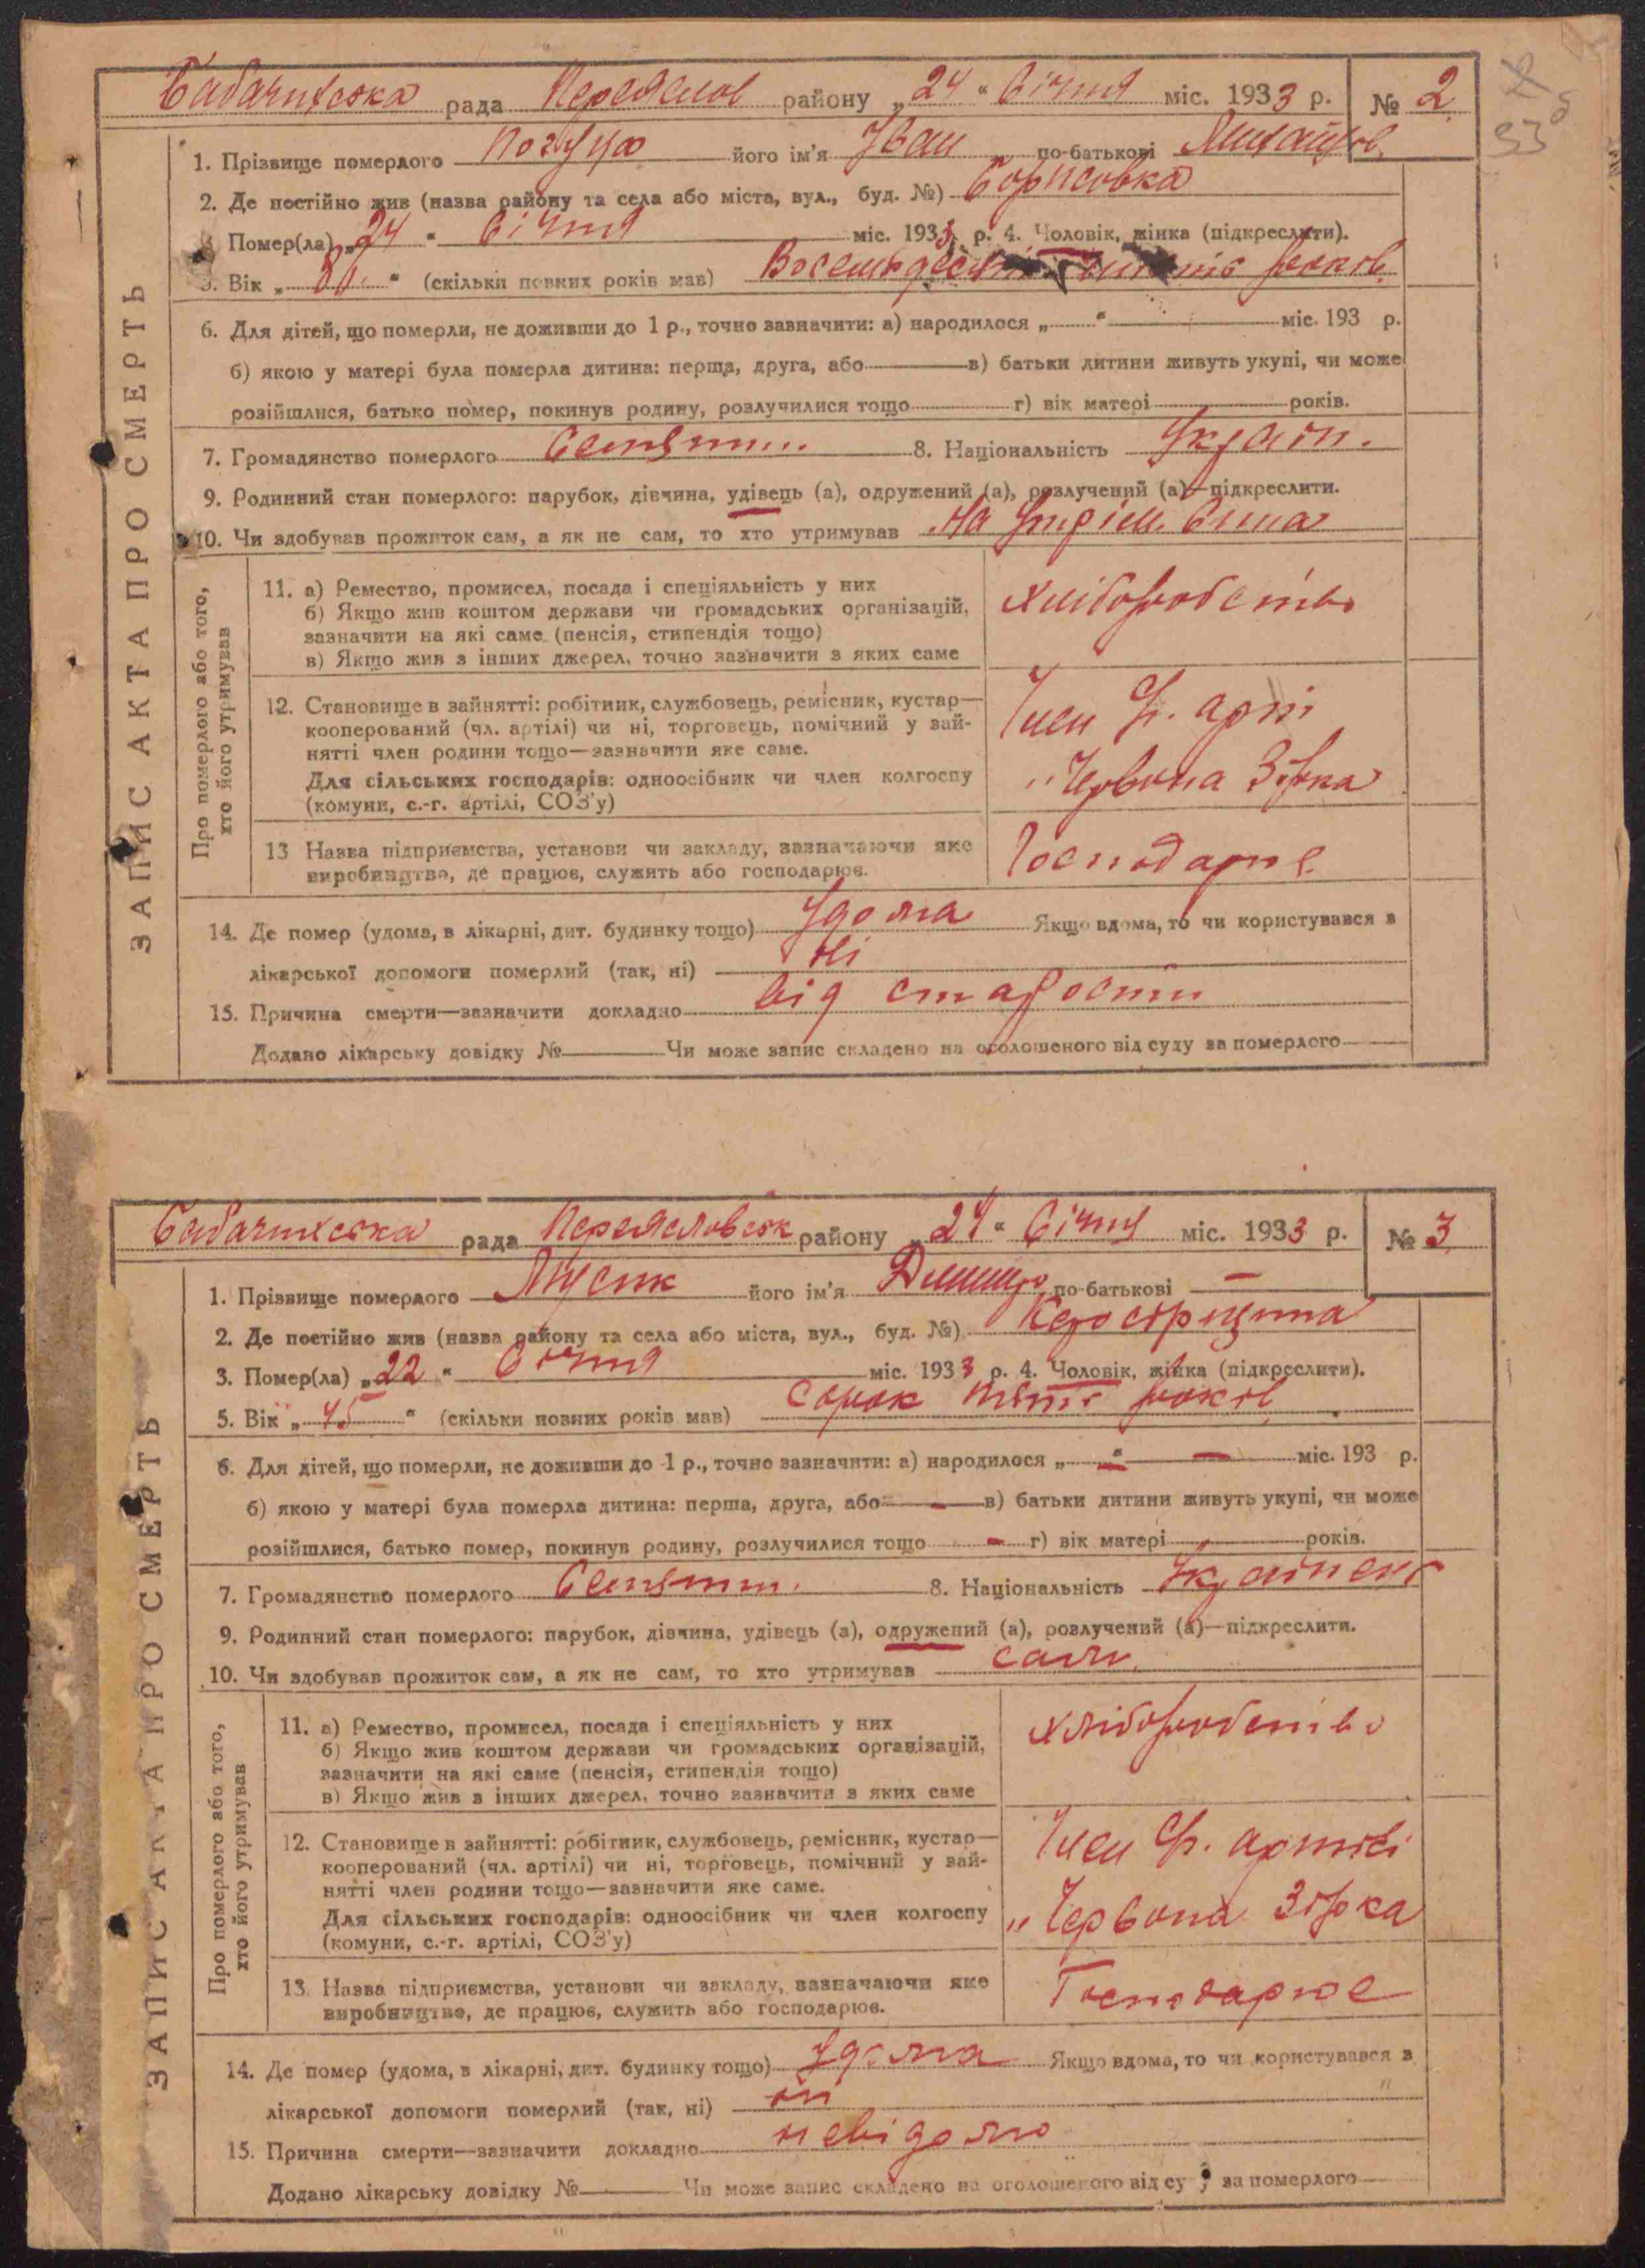 рада району „24“ Січня міс. 1933 р. № 2
1. Прізвище померлого його ім'я Іван по-батькові
2. Де постійно жив (назва району та села або міста, вул., буд. №) Борисовка
3. Помер(ла) „24“ Січня міс. 1933 р. 4. Чоловік, жінка (підкреслити).
5. Вік „ “ (скільки повних років мав) років
6. Для дітей, що померли, не доживши до 1 р., точно зазначити: а) народилося „ “ міс. 193 р.
б) якою у матері була померла дитина: перша, друга, або в) батьки дитини живуть укупі, чи може
розійшлися, батько помер, покинув родину, розлучилися тощо г) вік матері років.
7. Громадянство померлого 8. Національність Україн.
9. Родинний стан померлого: парубок, дівчина, удівець (а), одружений (а), розлучений (а)—підкреслити.
10. Чи здобував прожиток сам, а як не сам, то хто утримував На утрим. Сина
ЗАПИС АКТА ПРО СМЕРТЬ
Про померлого або того,
хто його утримував
11. а) Ремество, промисел, посада і спеціяльність у них
б) Якщо жив коштом держави чи громадських організацій,
зазначити на які саме (пенсія, стипендія тощо)
в) Якщо жив з інших джерел, точно зазначити з яких саме
хліборобство
12. Становище в зайнятті: робітник, службовець, ремісник, кустар—
кооперований (чл. артілі) чи ні, торговець, помічний у зай-
нятті член родини тощо—зазначити яке саме.
Для сільських господарів: одноосібник чи член колгоспу
(комуни, с.-г. артілі, СОЗ'у)
Член
„Червона Зірка
13 Назва підприємства, установи чи закладу, зазначаючи яке
виробництво, де працює, служить або господарює.
14. Де помер (удома, в лікарні, дит. будинку тощо) Удома Якщо вдома, то чи користувався з
лікарської допомоги померлий (так, ні) Ні
15. Причина смерти—зазначити докладно від старости
Додано лікарську довідку № Чи може запис складено на оголошеного від суду за померлого
рада Переяславськ району „24“ Січня міс. 1933 р. № 3
1. Прізвище померлого його ім'я по-батькові —
2. Де постійно жив (назва району та села або міста, вул., буд. №)
3. Помер(ла) „22“ Січня міс. 1933 р. 4. Чоловік, жінка (підкреслити).
5. Вік „45“ (скільки повних років мав) сорок років
6. Для дітей, що померли, не доживши до 1 р., точно зазначити: а) народилося „—“ — міс. 193 р.
б) якою у матері була померла дитина: перша, друга, або — в) батьки дитини живуть укупі, чи може
розійшлися, батько помер, покинув родину, розлучилися тощо — г) вік матері років.
7. Громадянство померлого 8. Національність Українець
9. Родинний стан померлого: парубок, дівчина, удівець (а), одружений (а), розлучений (а)—підкреслити.
10. Чи здобував прожиток сам, а як не сам, то хто утримував сам
ЗАПИС АКТА ПРО СМЕРТЬ
Про померлого або того,
хто його утримував
11. а) Ремество, промисел, посада і спеціяльність у них
б) Якщо жив коштом держави чи громадських організацій,
зазначити на які саме (пенсія, стипендія тощо)
в) Якщо жив з інших джерел, точно зазначити з яких саме
хліборобство
12. Становище в зайнятті: робітник, службовець, ремісник, кустар—
кооперований (чл. артілі) чи ні, торговець, помічний у зай-
нятті член родини тощо—зазначити яке саме.
Для сільських господарів: одноосібник чи член колгоспу
(комуни, с.-г. артілі, СОЗ'у)
Член артілі
„Червона Зірка
13. Назва підприємства, установи чи закладу, зазначаючи яке
виробництво, де працює, служить або господарює.
Господарює
14. Де помер (удома, в лікарні, дит. будинку тощо) Удома Якщо вдома, то чи користувався з
лікарської допомоги померлий (так, ні) ні
15. Причина смерти—зазначити докладно невідомо
Додано лікарську довідку № Чи може запис складено на оголошеного від суду за померлого